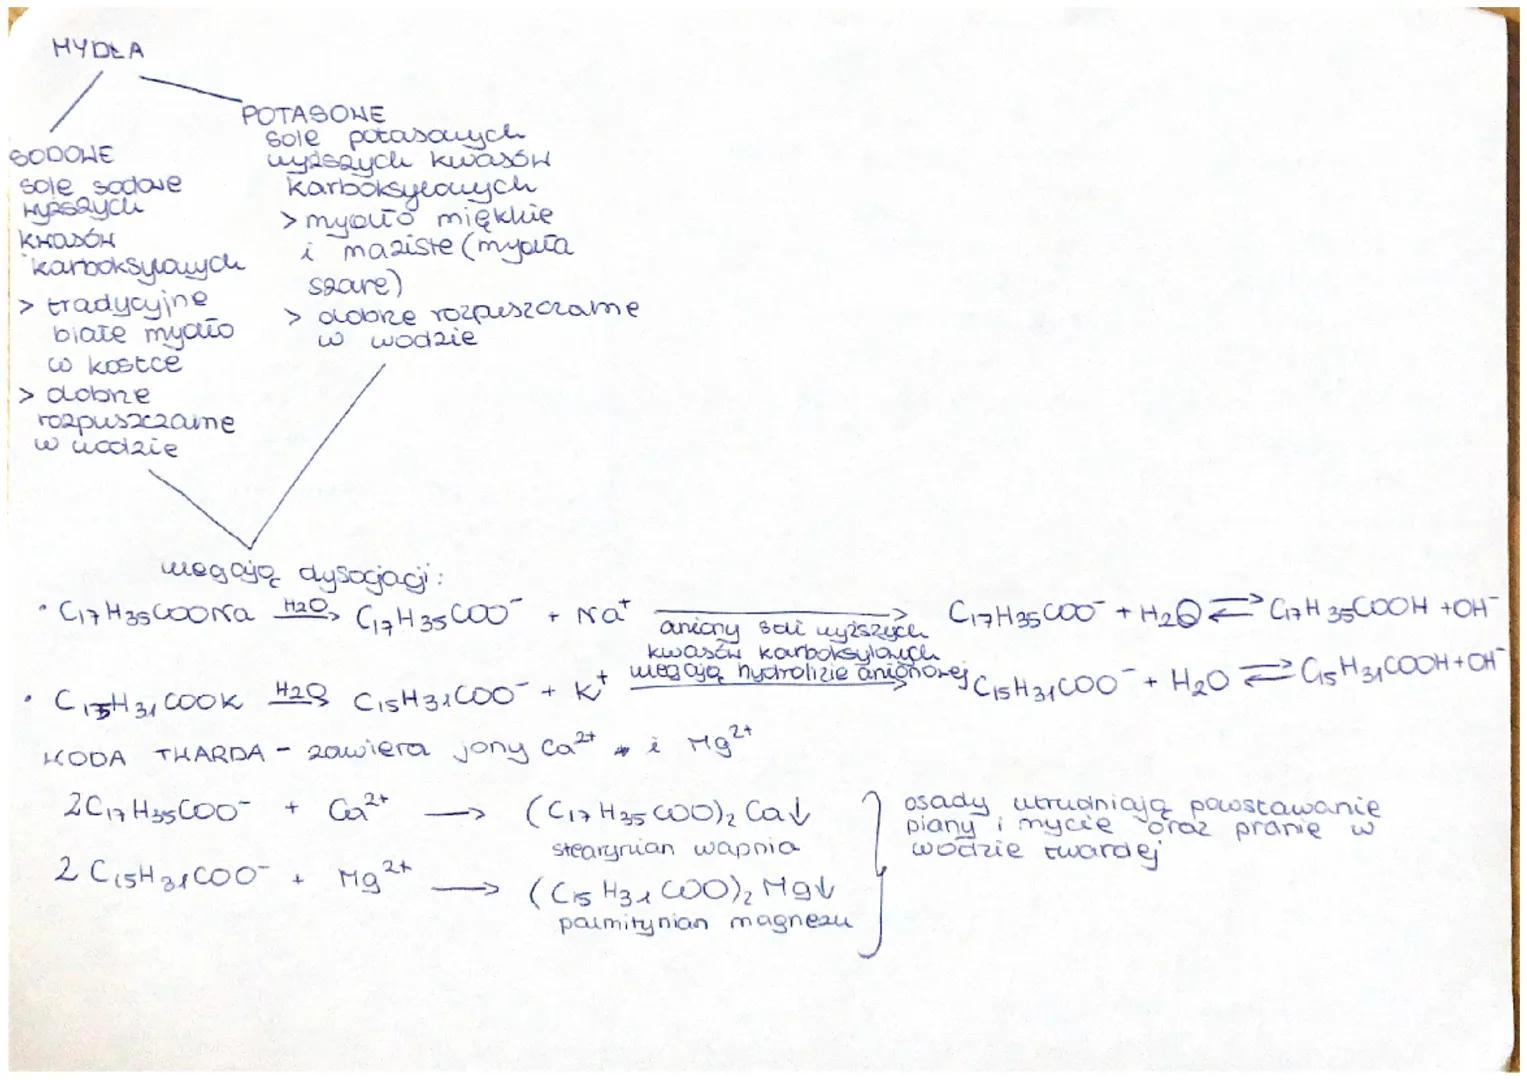 MYDŁA
SODOWE
sole sodowe
wyższych
kwasów
karboksylowych
> tradycyjne
białe mydło
w kostce
> dobrze
rozpuszczalne
w wodzie
POTASOWE
sole potasowych
wyższych kwasów
karboksylowych
> mydło miękkie
i maziste (mydła
szare)
> dobrze rozpuszczalne
w wodzie
ulegają dysocjacji:
• C₁₇H₃₅COONa —H₂O→ C₁₇H₃₅COO⁻ + Na⁺ → C₁₇H₃₅COO⁻ + H₂O ⇄ C₁₇H₃₅COOH + OH⁻
aniony soli wyższych
kwasów karboksylowych
ulegają hydrolizie anionowej
• C₁₅H₃₁COOK —H₂O→ C₁₅H₃₁COO⁻ + K⁺ → C₁₅H₃₁COO⁻ + H₂O ⇄ C₁₅H₃₁COOH + OH⁻
WODA TWARDA - zawiera jony Ca²⁺ i Mg²⁺
2C₁₇H₃₅COO⁻ + Ca²⁺ → (C₁₇H₃₅COO)₂Ca↓
stearynian wapnia
2C₁₅H₃₁COO⁻ + Mg²⁺ → (C₁₅H₃₁COO)₂Mg↓
palmitynian magnezu
osady utrudniają powstawanie
piany i mycie oraz pranie w
wodzie twardej